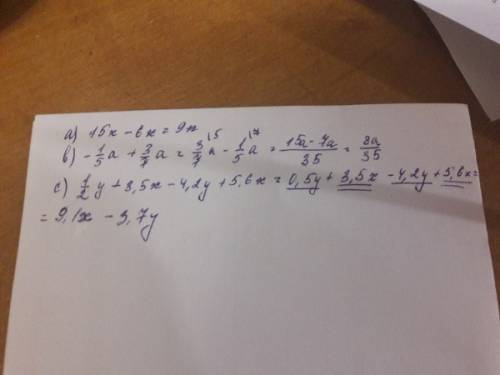 a) 15x - 6x = 9x
b) -1/5 a + 3/7 a = 3/7 a \5 - 1/5 a \7 = (15a - 7a)/35 = 8a/35
c) 1/2 y + 3,5x - 4,2y + 5,6x = 0,5y + 3,5x - 4,2y + 5,6x =
= 9,1x - 3,7y